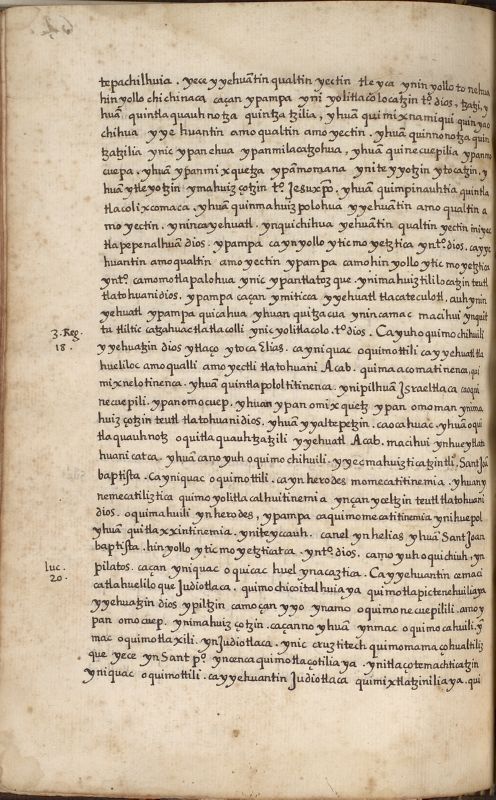 tepachilhuia. yece yyehuãtin qualtin yectin tle yca ynin yollo to nehua
hin yollo chichinaca caçan ypampa yni yolitlacolocatzin tº. dios, tzatzi, y
huã quintla quauh notza quintza tzilia, yhuã qui mixnamiqui quin yao
chihua yye huantin amo qualtin amo yectin. yhuã quinnonotza quin
tzatzilia ynic ypan ehua ypan milacatzohua, yhuã quine cuepilia ypan mo
cuepa. yhuã ypan mixquetza ypã momana ynite yyotzin ytocatzin. y
huã ytleyotzin ymahuizçotzin tº. Jesuxpõ. yhuã quimpinauhtia quintla
tlacolixcomaca. yhuã quinmahuizpolohua yyehuãtin amo qualtin a
mo yectin. ynin ca yehuatl. ynquichihua yehuãtin qualtin yectin iniyec
tlapepenalhuã dios. ypampa ca ynyollo ytic moyetztica yntº. dios. ca yye
huantin amo qualtin amo yectin ypampa camo hin yollo ytic moyetztica
yntº. camo motlapalohua ynic ypantlatozque ynimahuiztililocatzin teutl
tlatohuani dios. ypampa caçan ymiticca yyehuatl tlacatecolotl. auh ynin
yehuatl ypampa quicahua yhuan quitzacua ynin camac macihui ynquit
ta tliltic catzahuac tlatlacolli ynic yolitlacolo. tº. dios. Ca yuh oquimochihuili
3. Reg. 18.
yyehuatzin dios ytlaço ytoca Elias. ca yniquac oquimottili ca yyehuatl tla
hueliloc amo qualli amo yectli tlatohuani Acab. quimaacomatinenca, qui
mixnelotinenca. yhuã quintlapololtitinenca. ynipilhuan Israel tlaca caoqui
necuepili. ypan omocuep. yhuan ypan omixquetz ypan omoman ynima
huizçotzin teutl tlatohuani dios. yhuã yyaltepetzin. caocahuac. yhuã oqui
tlaquauhnotz oquitlaquauhtzatzili yyehuatl Acab. macihui yn huey tlato
huani catca. yhuã cano yuh oquimochihuili. yyec mahuizticatzintli, Sant Joã
baptista. Ca yniquac oquimottili. ca yn herodes momecatitinemia. yhuan y
nemecatiliztica quimoyolitlacalhuitinemia ynçan ycceltzin teutl tlatohuani
dios. oquimahuili yn herodes, ypampa caquimomecatitinemia ynihuepol
yhuã quitlaxxintinemia. yniteyccauh. canel yn helias yhuã Sant Joan
baptista. hin yollo ytic moyetzticatca. yntº. dios. camo yuh oquichiuh, yn
pilatos. caçan yniquac oquicac huel ynacaztica. Ca yyehuantin cemaci
luc. 20.
catlahuelilo que Judiotlaca. quimochicoitalhuiaya quimotlapictenehuiliaya
yyehuatzin dios ypiltzin camoçan yyo ynamo oquimonecuepilili. amo y
pan omocuep. ynimahuizçotzin. caçanno yhuã ynmac oquimocahuili. yn
mac oquimotlaxili. yn Judiotlaca. ynic cruztitech quimomamaçohualtiliz
que yece yn Sant pº. yncenca quimotlaçotiliaya. ynitlaçotemachticatzin
yniquac oquimottili. ca yyehuantin Judiotlaca quimixtlatziniliaya. qui